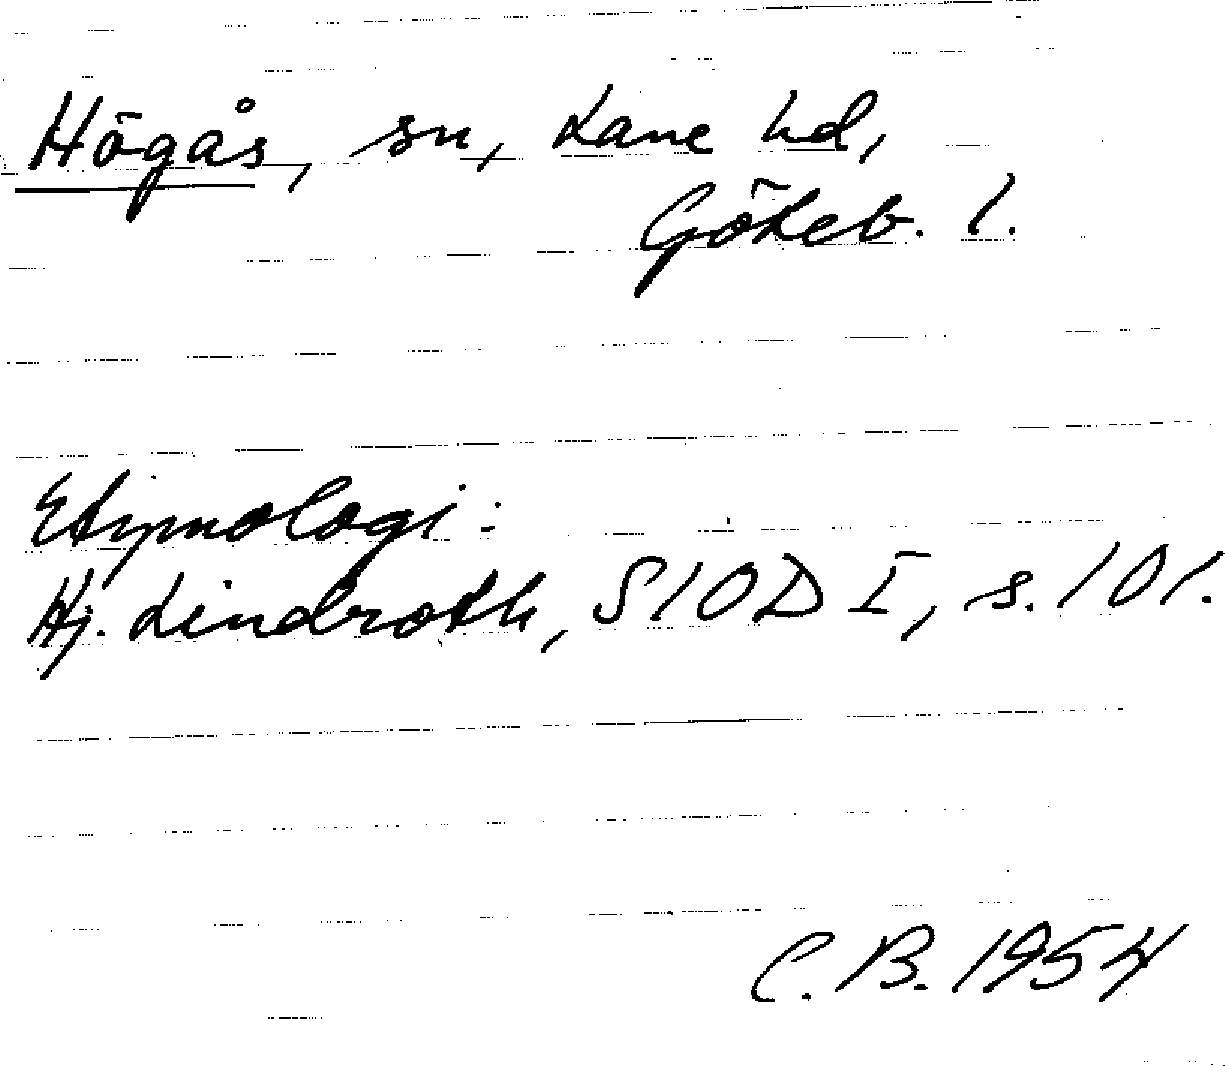 Högås, sn, Lane hd,
Göteb. l.
Etymologi:
Hj. Lindroth, SIOD I, s. 101.
C. B. 1954